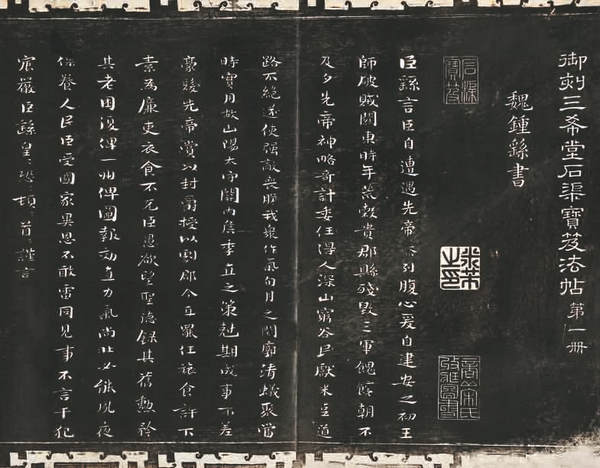 御刻三希堂石渠寶笈法帖 第一冊
魏鍾繇書
石渠寶笈
臣繇言臣自遭遇先帝忝列腹心爰自建安之初王
師破賊關東時年荒穀貴郡縣殘毀三軍餽饟朝不
及夕先帝神略奇計委任得人深山窮谷民獻米豆道
路不絕遂使強敵喪膽我衆作氣旬月之間廓清蟻聚當
時實用故山陽太守關內侯季直之策剋期成事不差
豪髮先帝賞以封爵授以劇郡今直罷任旅食許下
素為廉吏衣食不充臣愚欲望聖德錄其舊勳矜
其老困復俾一州俾圖報效直力氣尚壯必能夙夜
保養人民臣受國家異恩不敢雷同見事不言干犯
宸嚴臣繇皇〻恐〻頓〻首〻謹言